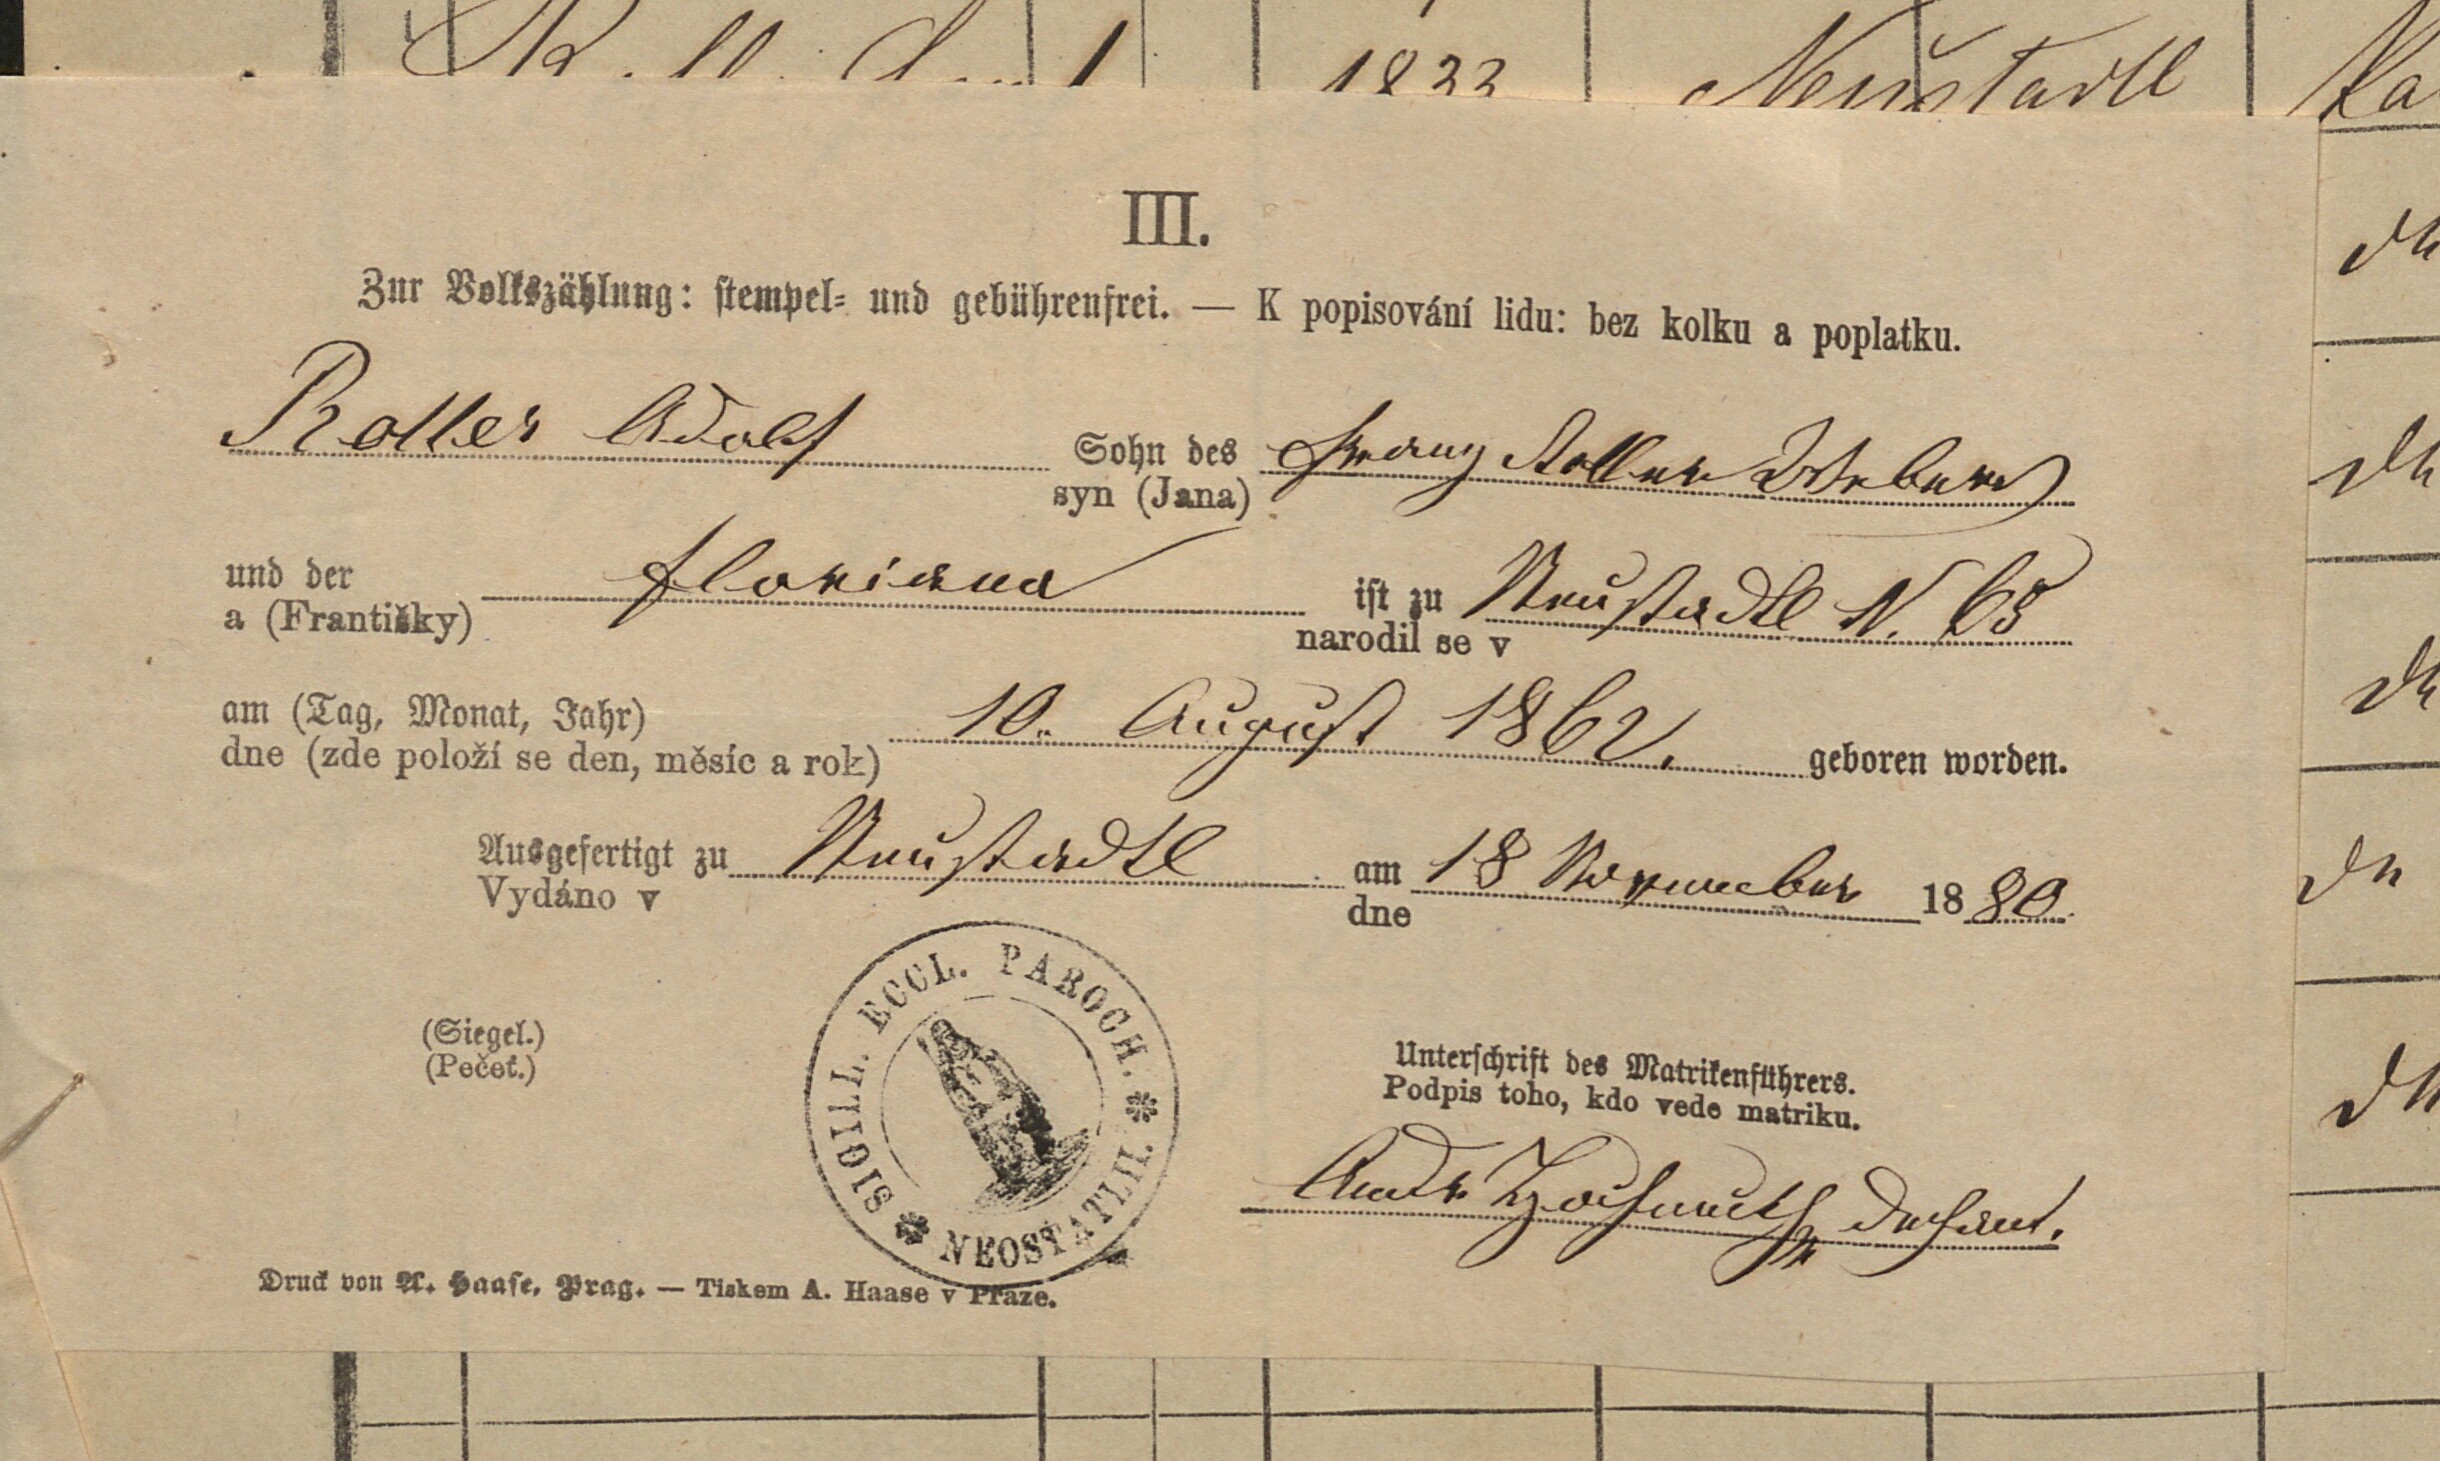 1822 Neustadtl
III.
Zur Volkszählung: stempel- und gebührenfrei. — K popisování lidu: bez kolku a poplatku.
Roller Adolf Sohn des Franz Roller Webers
syn (Jana)
und der Floriana ist zu Neustadtl N. 65
a (Františky) narodil se v
am (Tag, Monat, Jahr) 10. August 1862. geboren worden.
dne (zde položí se den, měsíc a rok)
Ausgefertigt zu Neustadtl am 18 November 1880.
Vydáno v dne
SIGILL. ECCL. PAROCH. NEOSTATLII.
(Siegel.)
(Pečeť.)
Unterschrift des Matrikenführers.
Podpis toho, kdo vede matriku.
Dechant.
Druck von A. Haase, Prag. — Tiskem A. Haase v Praze.